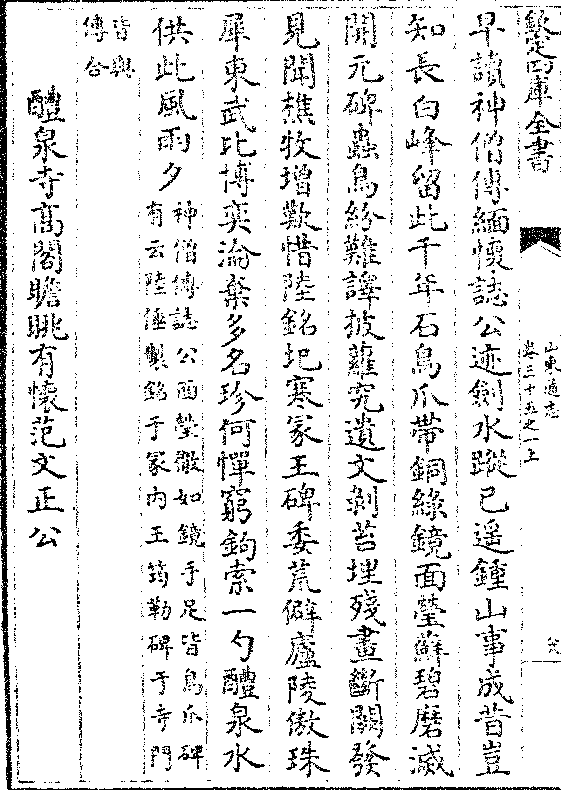 欽定四庫全書
山東通志
卷三十五之一上
早讀神僧傳緬懷誌公迹劍水蹤已遥鍾山事成昔豈
知長白峰留此千年石鳥爪帶銅綠鏡面瑩蘚碧磨滅
開元碑蟲鳥紛難譯披蘿究遺文剝苔埋殘畫斷闕發
見聞樵牧增歎惜陸銘圯寒冢王碑委荒僻廬陵傲珠
犀東武比博奕淪棄多名珍何憚窮鉤索一勺醴泉水
供此風雨夕神僧傳誌公面瑩徹如鏡手足皆鳥爪碑
有云陸倕製銘于冢内王筠勒碑于寺門
皆與
傳合
醴泉寺髙閣瞻眺有懷范文正公